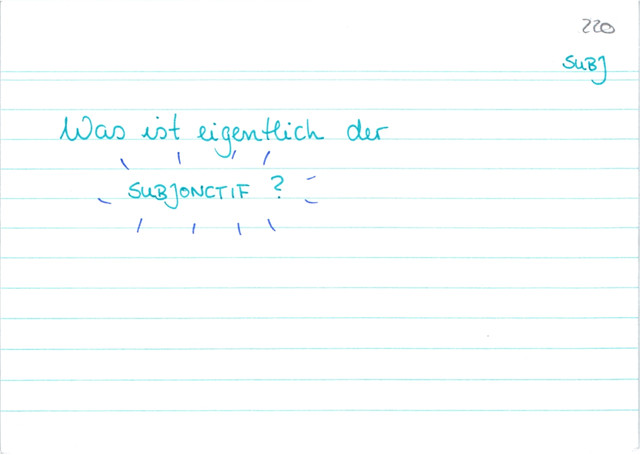 220
SUBJ
Was ist eigentlich der
SUBJONCTIF ?